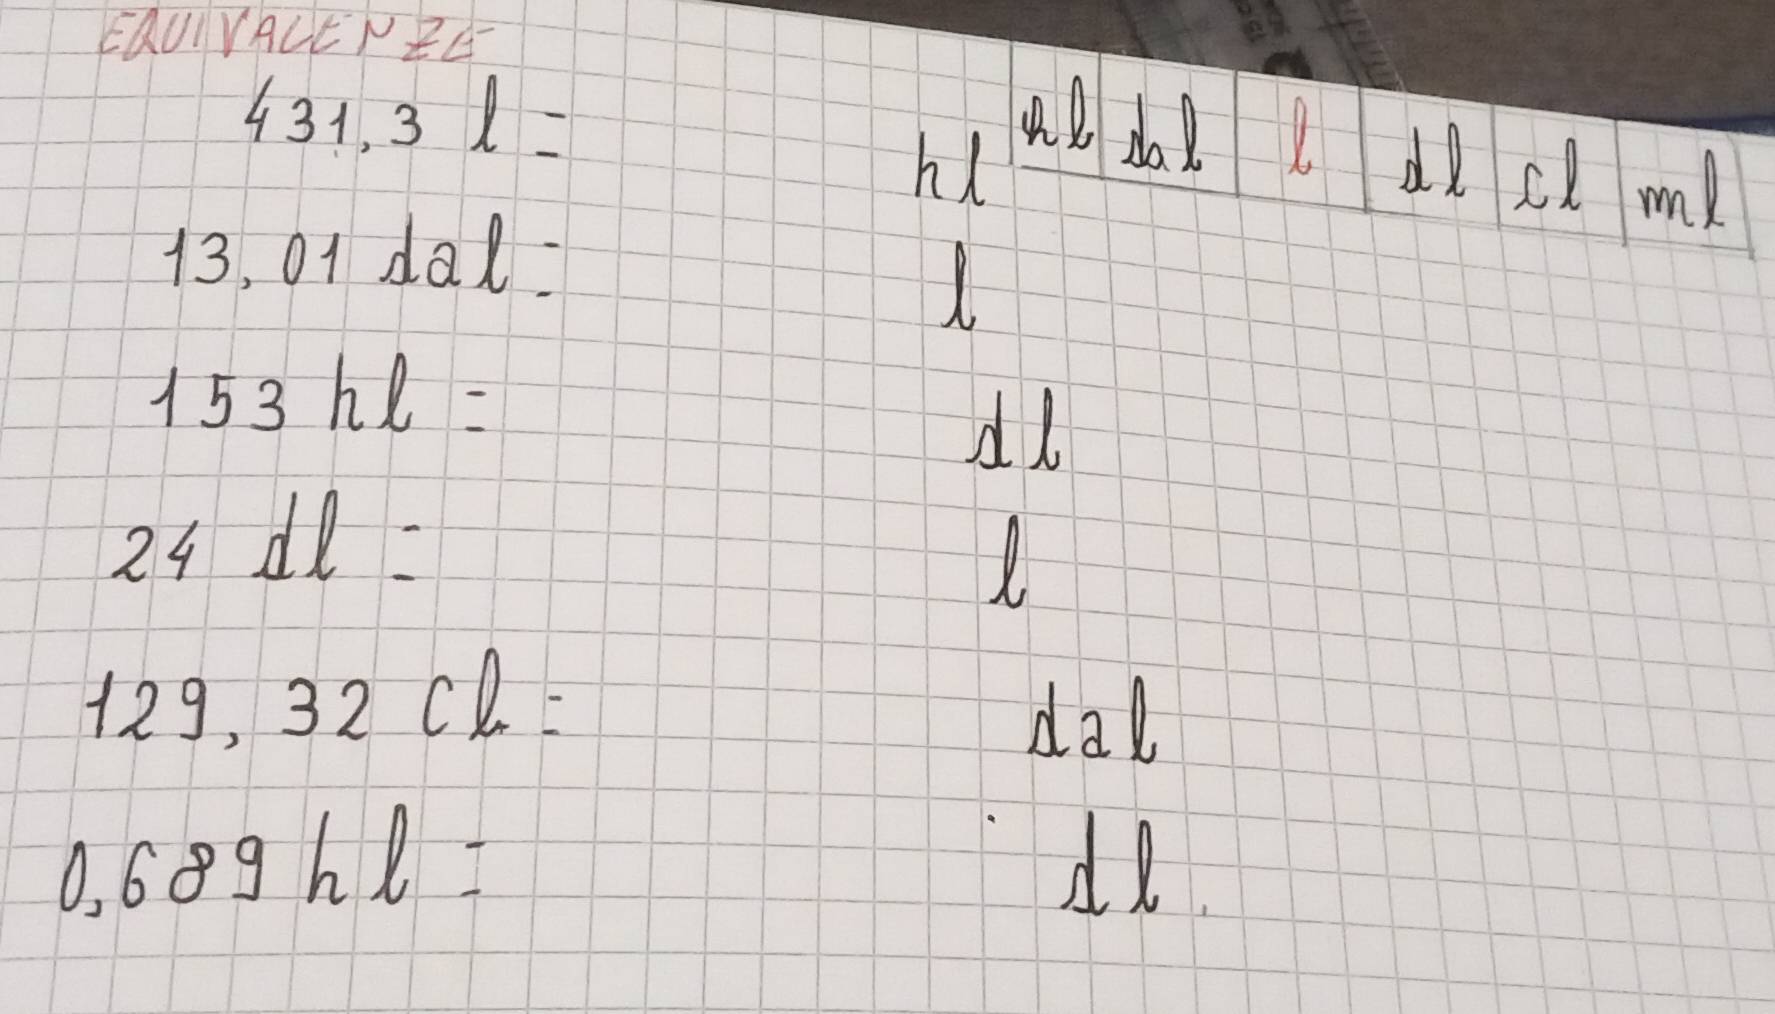 EQUIVALENZE
hl dal l dl cl ml
431,3 l = hl
13,01 dal = l
153 hl = dl
24 dl = l
129,32 cl = dal
0,689 hl = dl